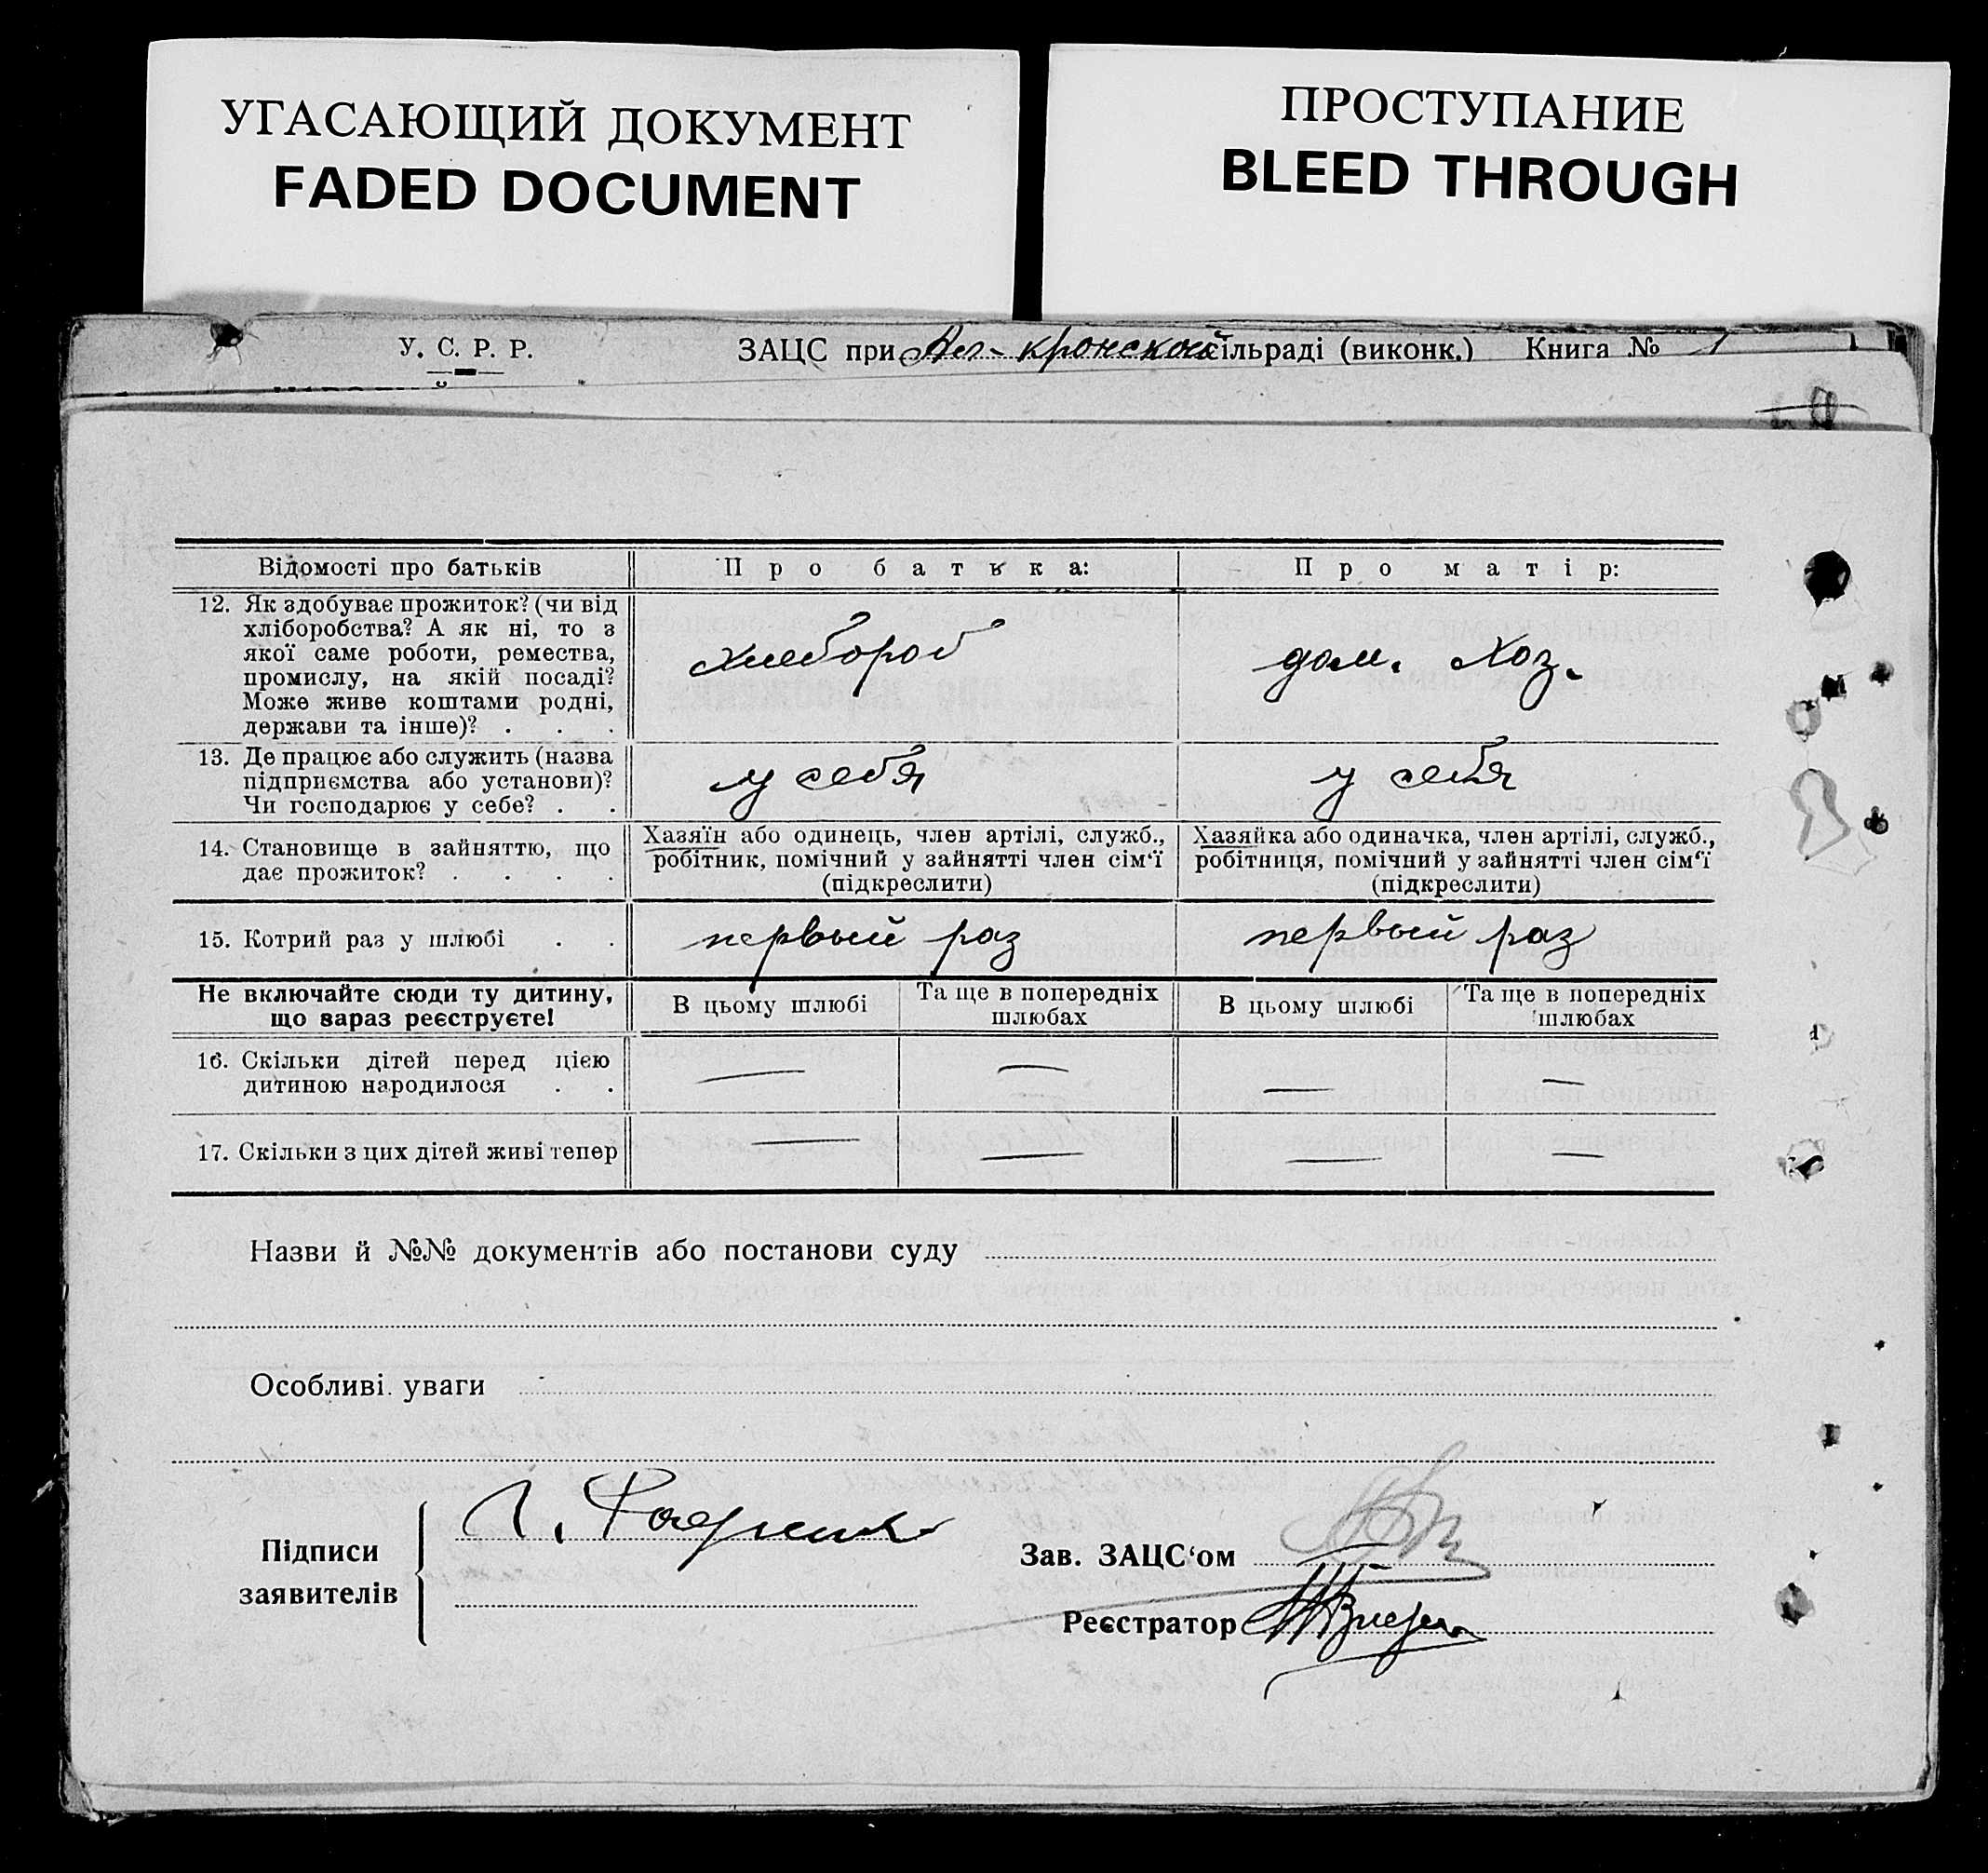 УГАСАЮЩИЙ ДОКУМЕНТ
FADED DOCUMENT
ПРОСТУПАНИЕ
BLEED THROUGH
У. С. Р. Р.
ЗАЦС при кронской сільраді (виконк.) Книга № 1
Відомості про батьків
Про батька:
Про матір:
12. Як здобуває прожиток? (чи від
хліборобства? А як ні, то з
якої саме роботи, ремества,
промислу, на якій посаді?
Може живе коштами родні,
держави та інше)? . . .
хлебороб
дом. хоз.
13. Де працює або служить (назва
підприємства або установи)?
Чи господарює у себе? . .
у себя
у себя
14. Становище в зайняттю, що
дає прожиток? . . . .
Хазяїн або одинець, член артілі, служб.,
робітник, помічний у зайнятті член сім‘ї
(підкреслити)
Хазяйка або одиначка, член артілі, служб.,
робітниця, помічний у зайнятті член сім‘ї
(підкреслити)
15. Котрий раз у шлюбі . .
первый раз
первый раз
Не включайте сюди ту дитину,
що зараз реєструєте!
В цьому шлюбі
Та ще в попередніх
шлюбах
В цьому шлюбі
Та ще в попередніх
шлюбах
16. Скільки дітей перед цією
дитиною народилося . .
— — — —
17. Скільки з цих дітей живі тепер
— — — —
Назви й №№ документів або постанови суду
Особливі уваги
Підписи
заявителів
Зав. ЗАЦС‘ом
Реєстратор